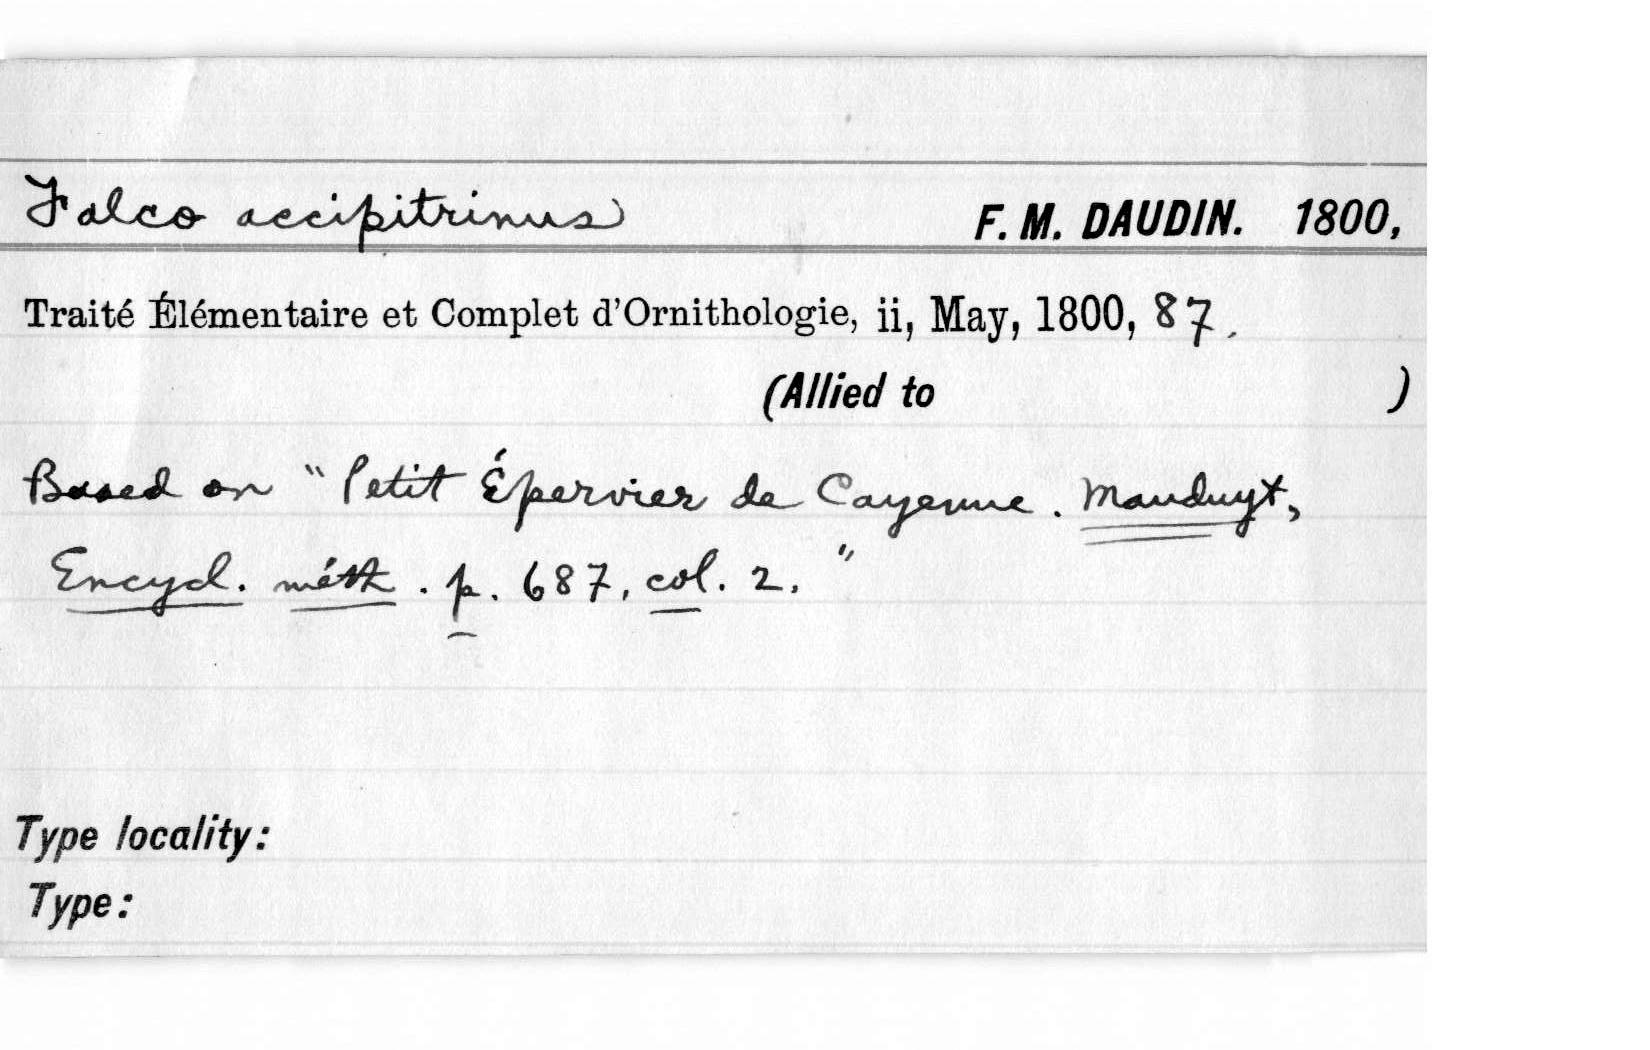 Falco accipitrinus F. M. DAUDIN. 1800,
Traité Élémentaire et Complet d'Ornithologie, ii, May, 1800, 87.
(Allied to )
Based on "Petit Épervier de Cayenne. Mauduyt,
Encycl. méth. p. 687, col. 2."
Type locality:
Type: